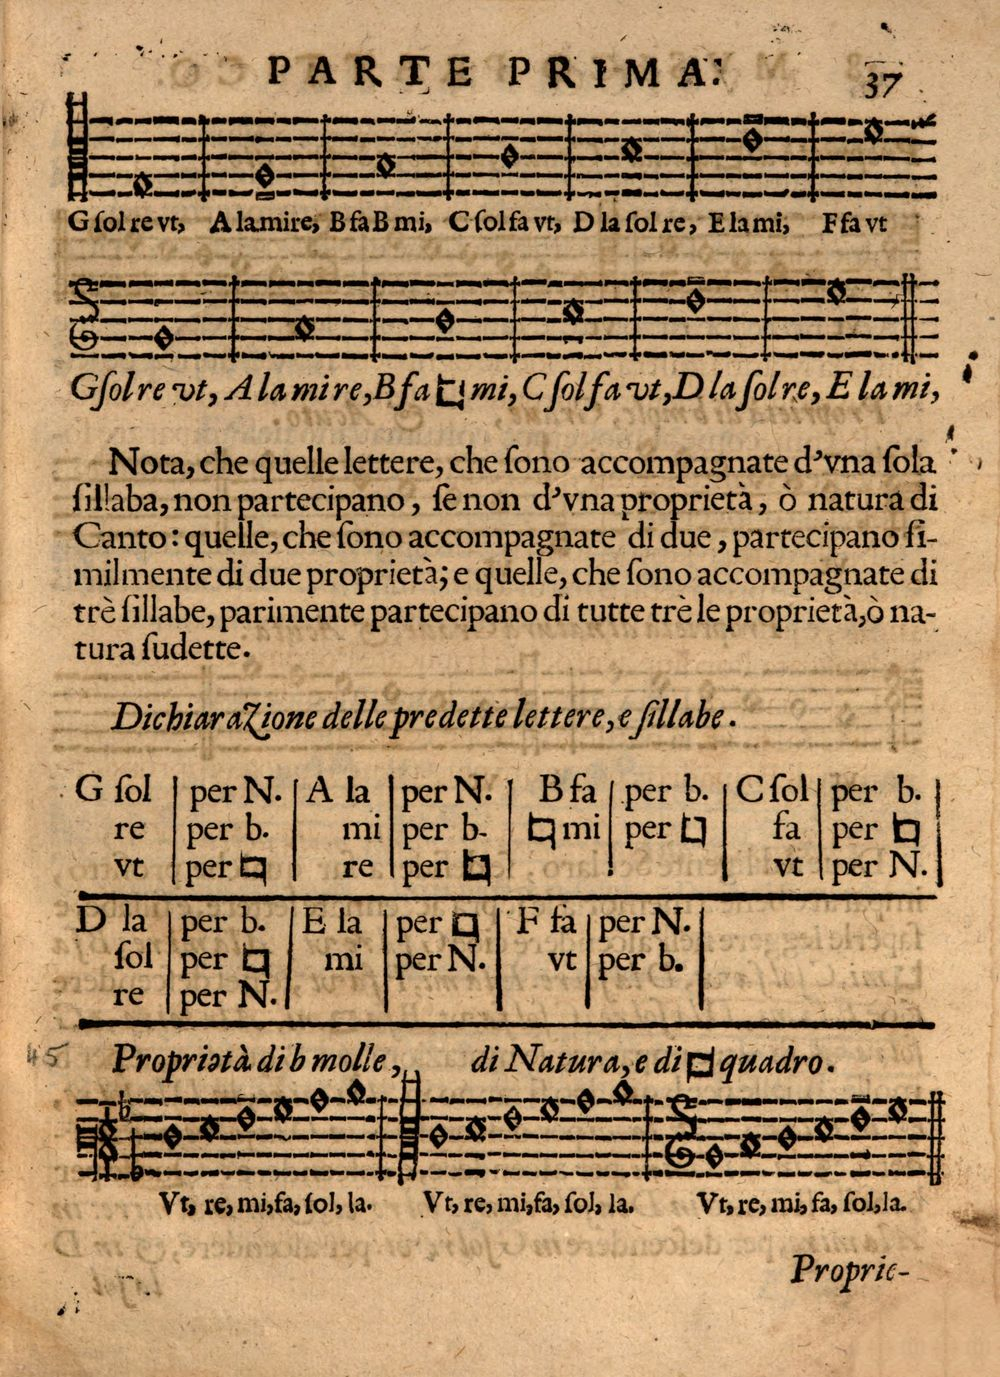 PARTE PRIMA. 37
G sol re vt, A la mi re, B fa B mi, C sol fa vt, D la sol re, E la mi, F fa vt
G sol re vt, A la mi re, B fa ♮ mi, C sol fa vt, D la sol re, E la mi,
Nota, che quelle lettere, che ſono accompagnate d'vna ſola
ſillaba, non partecipano, ſe non d'vna proprietà, ò natura di
Canto: quelle, che ſono accompagnate di due, partecipano ſi-
milmente di due proprietà; e quelle, che ſono accompagnate di
trè ſillabe, parimente partecipano di tutte trè le proprietà, ò na-
tura ſudette.
Dichiarazione delle predette lettere, e ſillabe.
G ſol | per N. | A la | per N. | B fa | per b. | C ſol | per b. |
re | per b. | mi | per b- | ♮ mi | per ♮ | fa | per ♮
vt | per ♮ | re | per ♮ | vt | per N. |
D la | per b. | E la | per ♮ | F fa | per N. |
ſol | per ♮ | mi | per N. | vt | per b. |
re | per N. |
45 Proprietà di b molle, di Natura, e di ♮ quadro.
Vt, re, mi, fa, ſol, la. Vt, re, mi, fa, ſol, la. Vt, re, mi, fa, ſol, la.
Proprie-